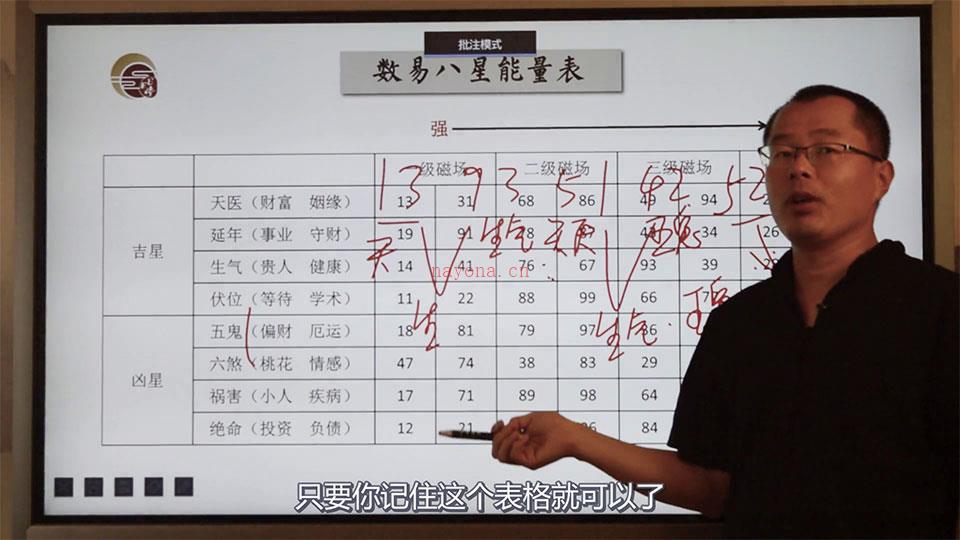 批注模式
数易八星能量表
强
一级磁场 二级磁场 三级磁场
吉星
天医（财富 姻缘） 13 31 68 86 49 94
延年（事业 守财） 19 91 34 26
生气（贵人 健康） 14 41 76 67 93 39
伏位（等待 学术） 11 22 88 99 66
凶星
五鬼（偏财 厄运） 18 81 79 97
六煞（桃花 情感） 47 74 38 83 29
祸害（小人 疾病） 17 71 89 98 64
绝命（投资 负债） 12 21 84
13 9 3 5 1 42 52
天 生气
生 生气
nayona.cn
只要你记住这个表格就可以了